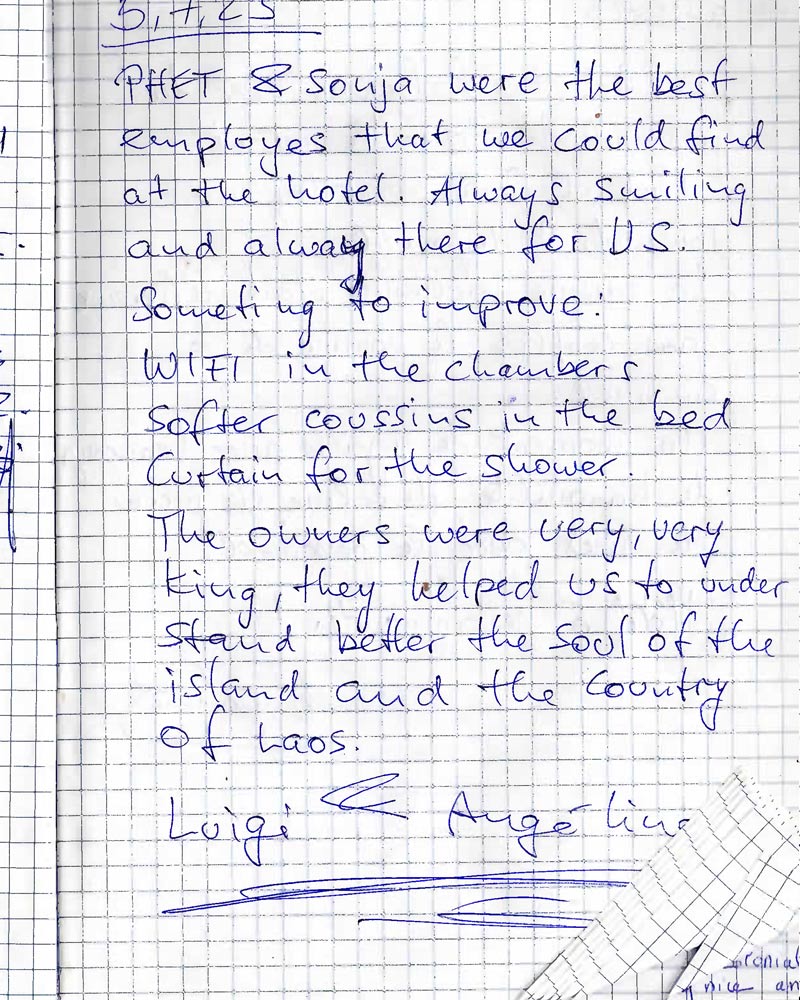 5,7,23
PHET & Sonja were the best
employes that we could find
at the hotel. Always smiling
and alway there for US.
Someting to improve:
WIFI in the chambers
Softer coussins in the bed
Curtain for the shower.
The owners were very, very
king, they helped us to under
stand better the soul of the
island and the Country
of Laos.
Luigi & Angélina
nice an